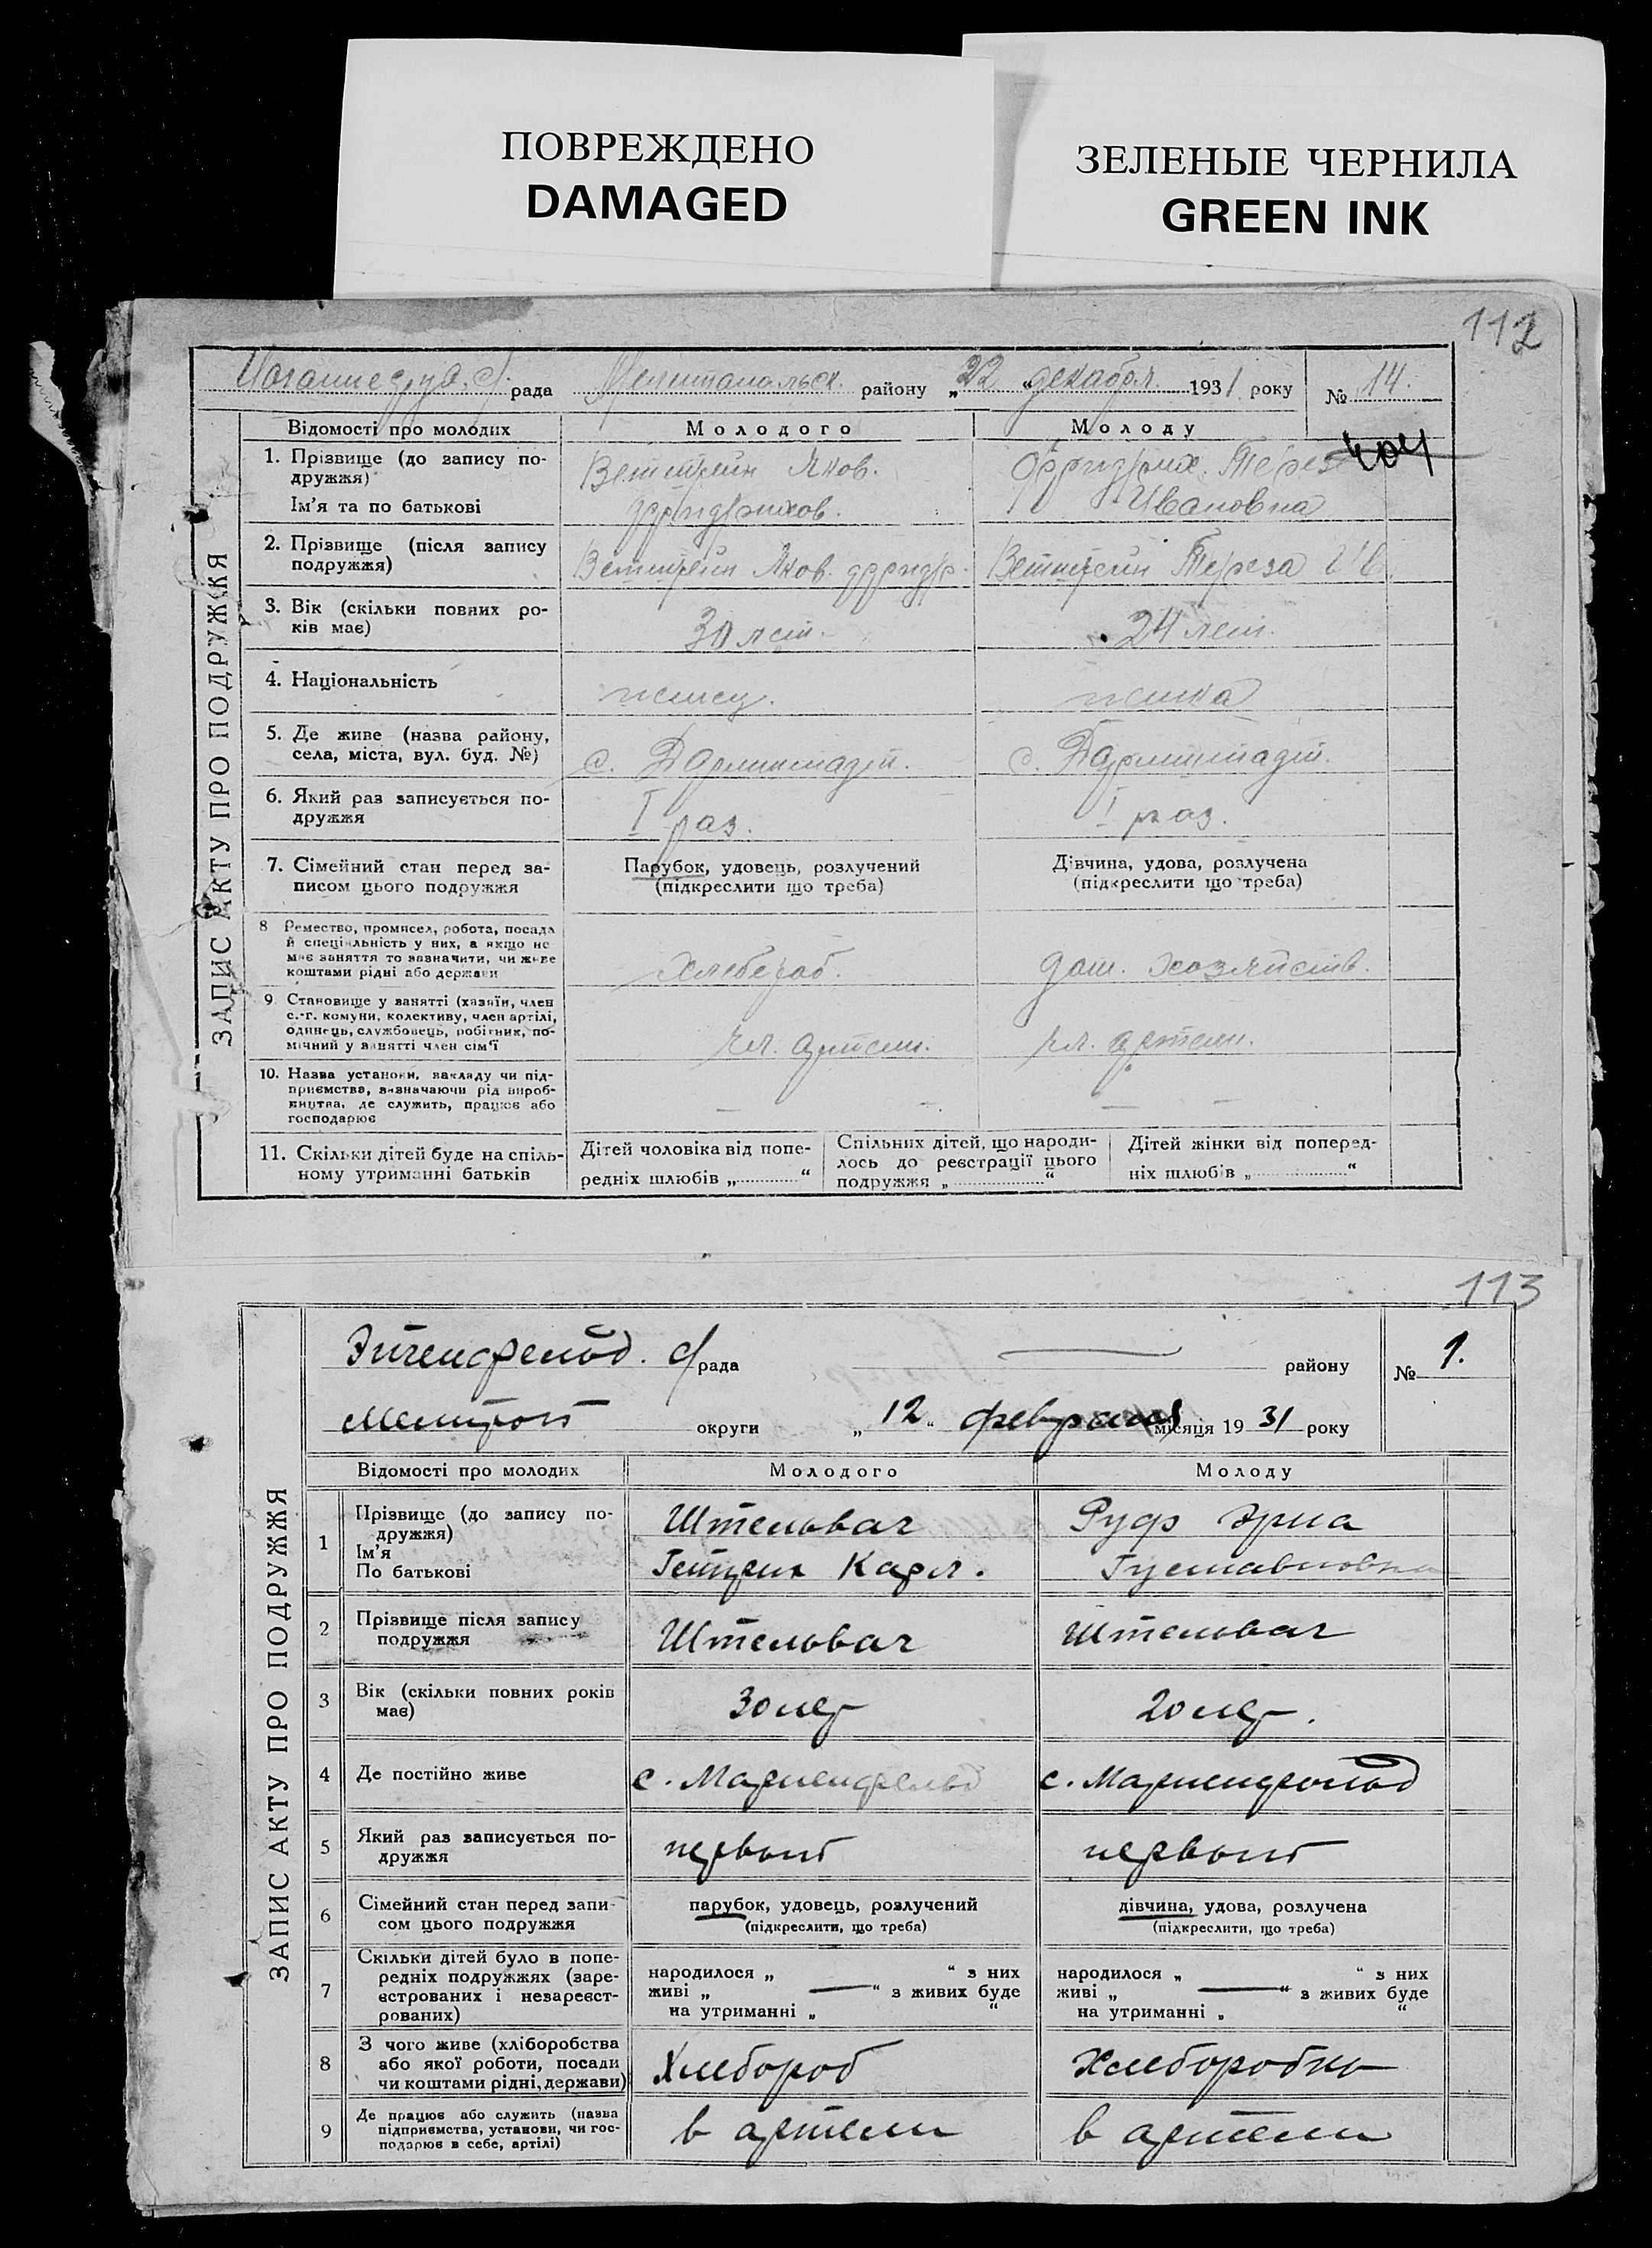 ПОВРЕЖДЕНО
DAMAGED
ЗЕЛЕНЫЕ ЧЕРНИЛА
GREEN INK
112
рада району „22“ декабря 1931 року № 14.
ЗАПИС АКТУ ПРО ПОДРУЖЖЯ
Відомості про молодих Молодого Молоду
404
1. Прізвище (до запису по-
дружжя)
Ім'я та по батькові
Яков.
Фридрихов.
Фридрих. Терез
Ивановна
2. Прізвище (після запису
подружжя)
Яков. Фридр. Тереза Ив
3. Вік (скільки повних ро-
ків має)
30 лет. 24 лет.
4. Національність
немец. немка
5. Де живе (назва району,
села, міста, вул. буд. №)
с. Дармштадт. с. Дармштадт.
6. Який раз записується по-
дружжя
I раз. I раз.
7. Сімейний стан перед за-
писом цього подружжя
Парубок, удовець, розлучений
(підкреслити що треба)
Дівчина, удова, розлучена
(підкреслити що треба)
8 Ремество, промисел, робота, посада
й спеціяльність у них, а якщо не
має заняття то зазначити, чи живе
коштами рідні або держави
Хлебороб. дом. хозяйств.
9. Становище у занятті (хазяїн, член
с.-г. комуни, колективу, член артілі,
одинець, службовець, робітник, по-
мічний у занятті член сім'ї
чл. артели. чл. артели.
10. Назва установи, закладу чи під-
приємства, зазначаючи рід вироб-
ництва, де служить, працює або
господарює
— — — —
11. Скільки дітей буде на спіль-
ному утриманні батьків
Дітей чоловіка від попе-
редніх шлюбів „ “
Спільних дітей, що народи-
лось до реєстрації цього
подружжя „ “
Дітей жінки від поперед-
ніх шлюбів „ “
113
с/рада — району № 1.
округи „12“ февраля місяця 1931 року
ЗАПИС АКТУ ПРО ПОДРУЖЖЯ
Відомості про молодих Молодого Молоду
1 Прізвище (до запису по-
дружжя)
Ім'я
По батькові
Штельваг
Генрих Карл.
Руф Эрна
Густавновна
2 Прізвище після запису
подружжя
Штельваг Штельваг
3 Вік (скільки повних років
має)
30 лет 20 лет.
4 Де постійно живе
с. Мариенфельд с. Мариенфельд
5 Який раз записується по-
дружжя
первый первый
6 Сімейний стан перед запи-
сом цього подружжя
парубок, удовець, розлучений
(підкреслити, що треба)
дівчина, удова, розлучена
(підкреслити, що треба)
7 Скільки дітей було в попе-
редніх подружжях (заре-
єстрованих і незареєст-
рованих)
народилося „ “ з них
живі „ — “ з живих буде
на утриманні „ “
народилося „ “ з них
живі „ — “ з живих буде
на утриманні „ “
8 З чого живе (хліборобства
або якої роботи, посади
чи коштами рідні, держави)
Хлебороб Хлеборобка
9 Де працює або служить (назва
підприємства, установи, чи гос-
подарює в себе, артілі)
в артели в артели